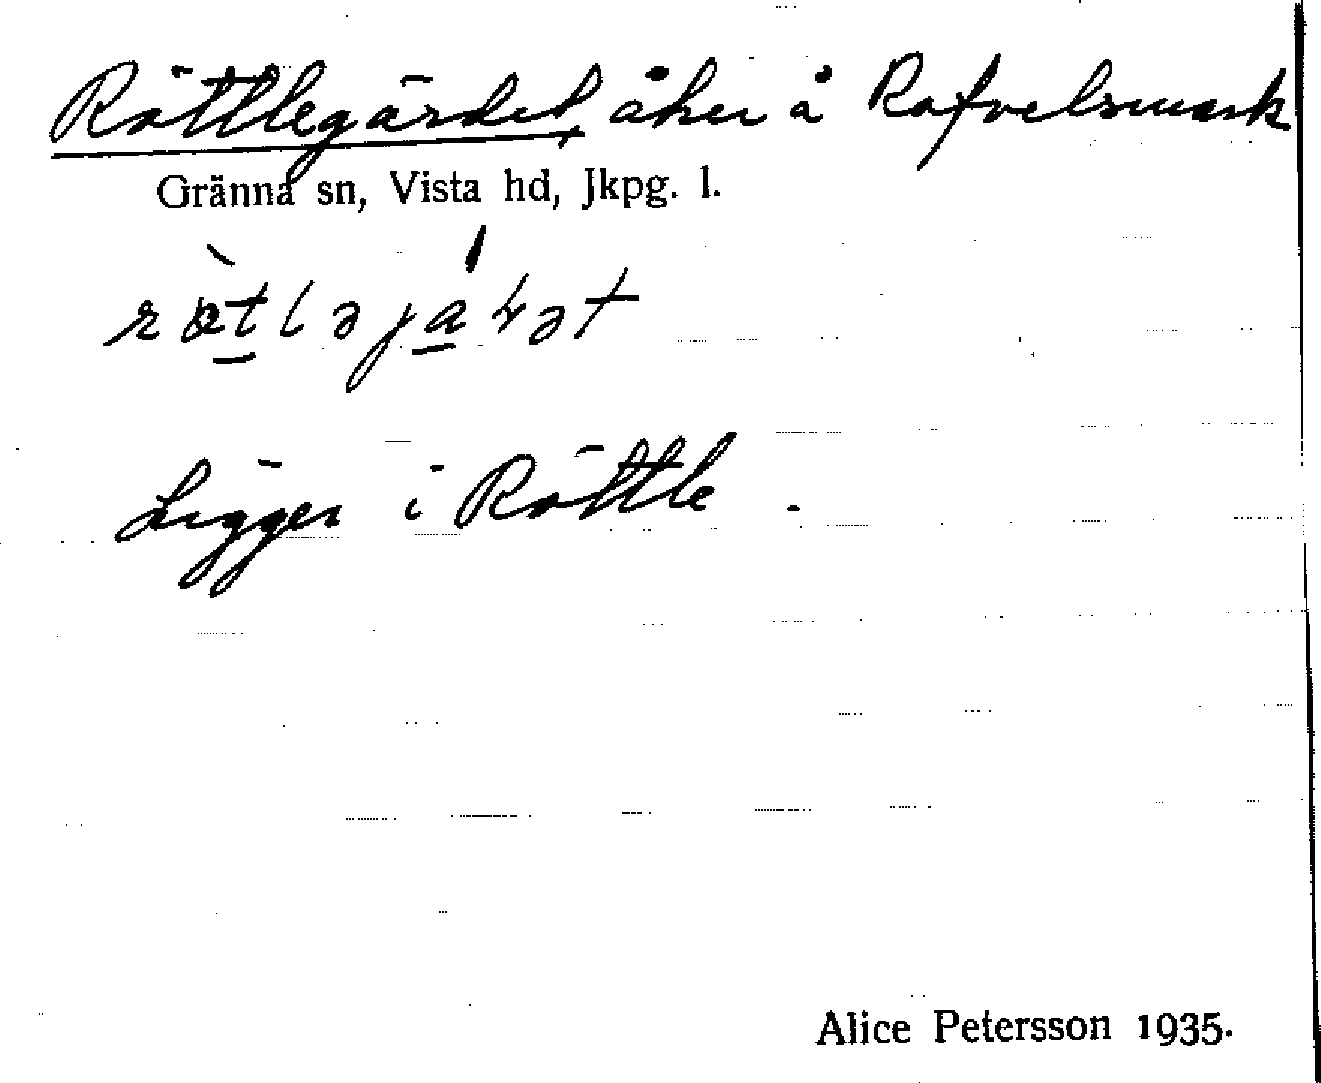 Röttlegärdet, åker å Rafvelsmark
Gränna sn, Vista hd, Jkpg. l.
Ligger i Röttle.
Alice Petersson 1935.